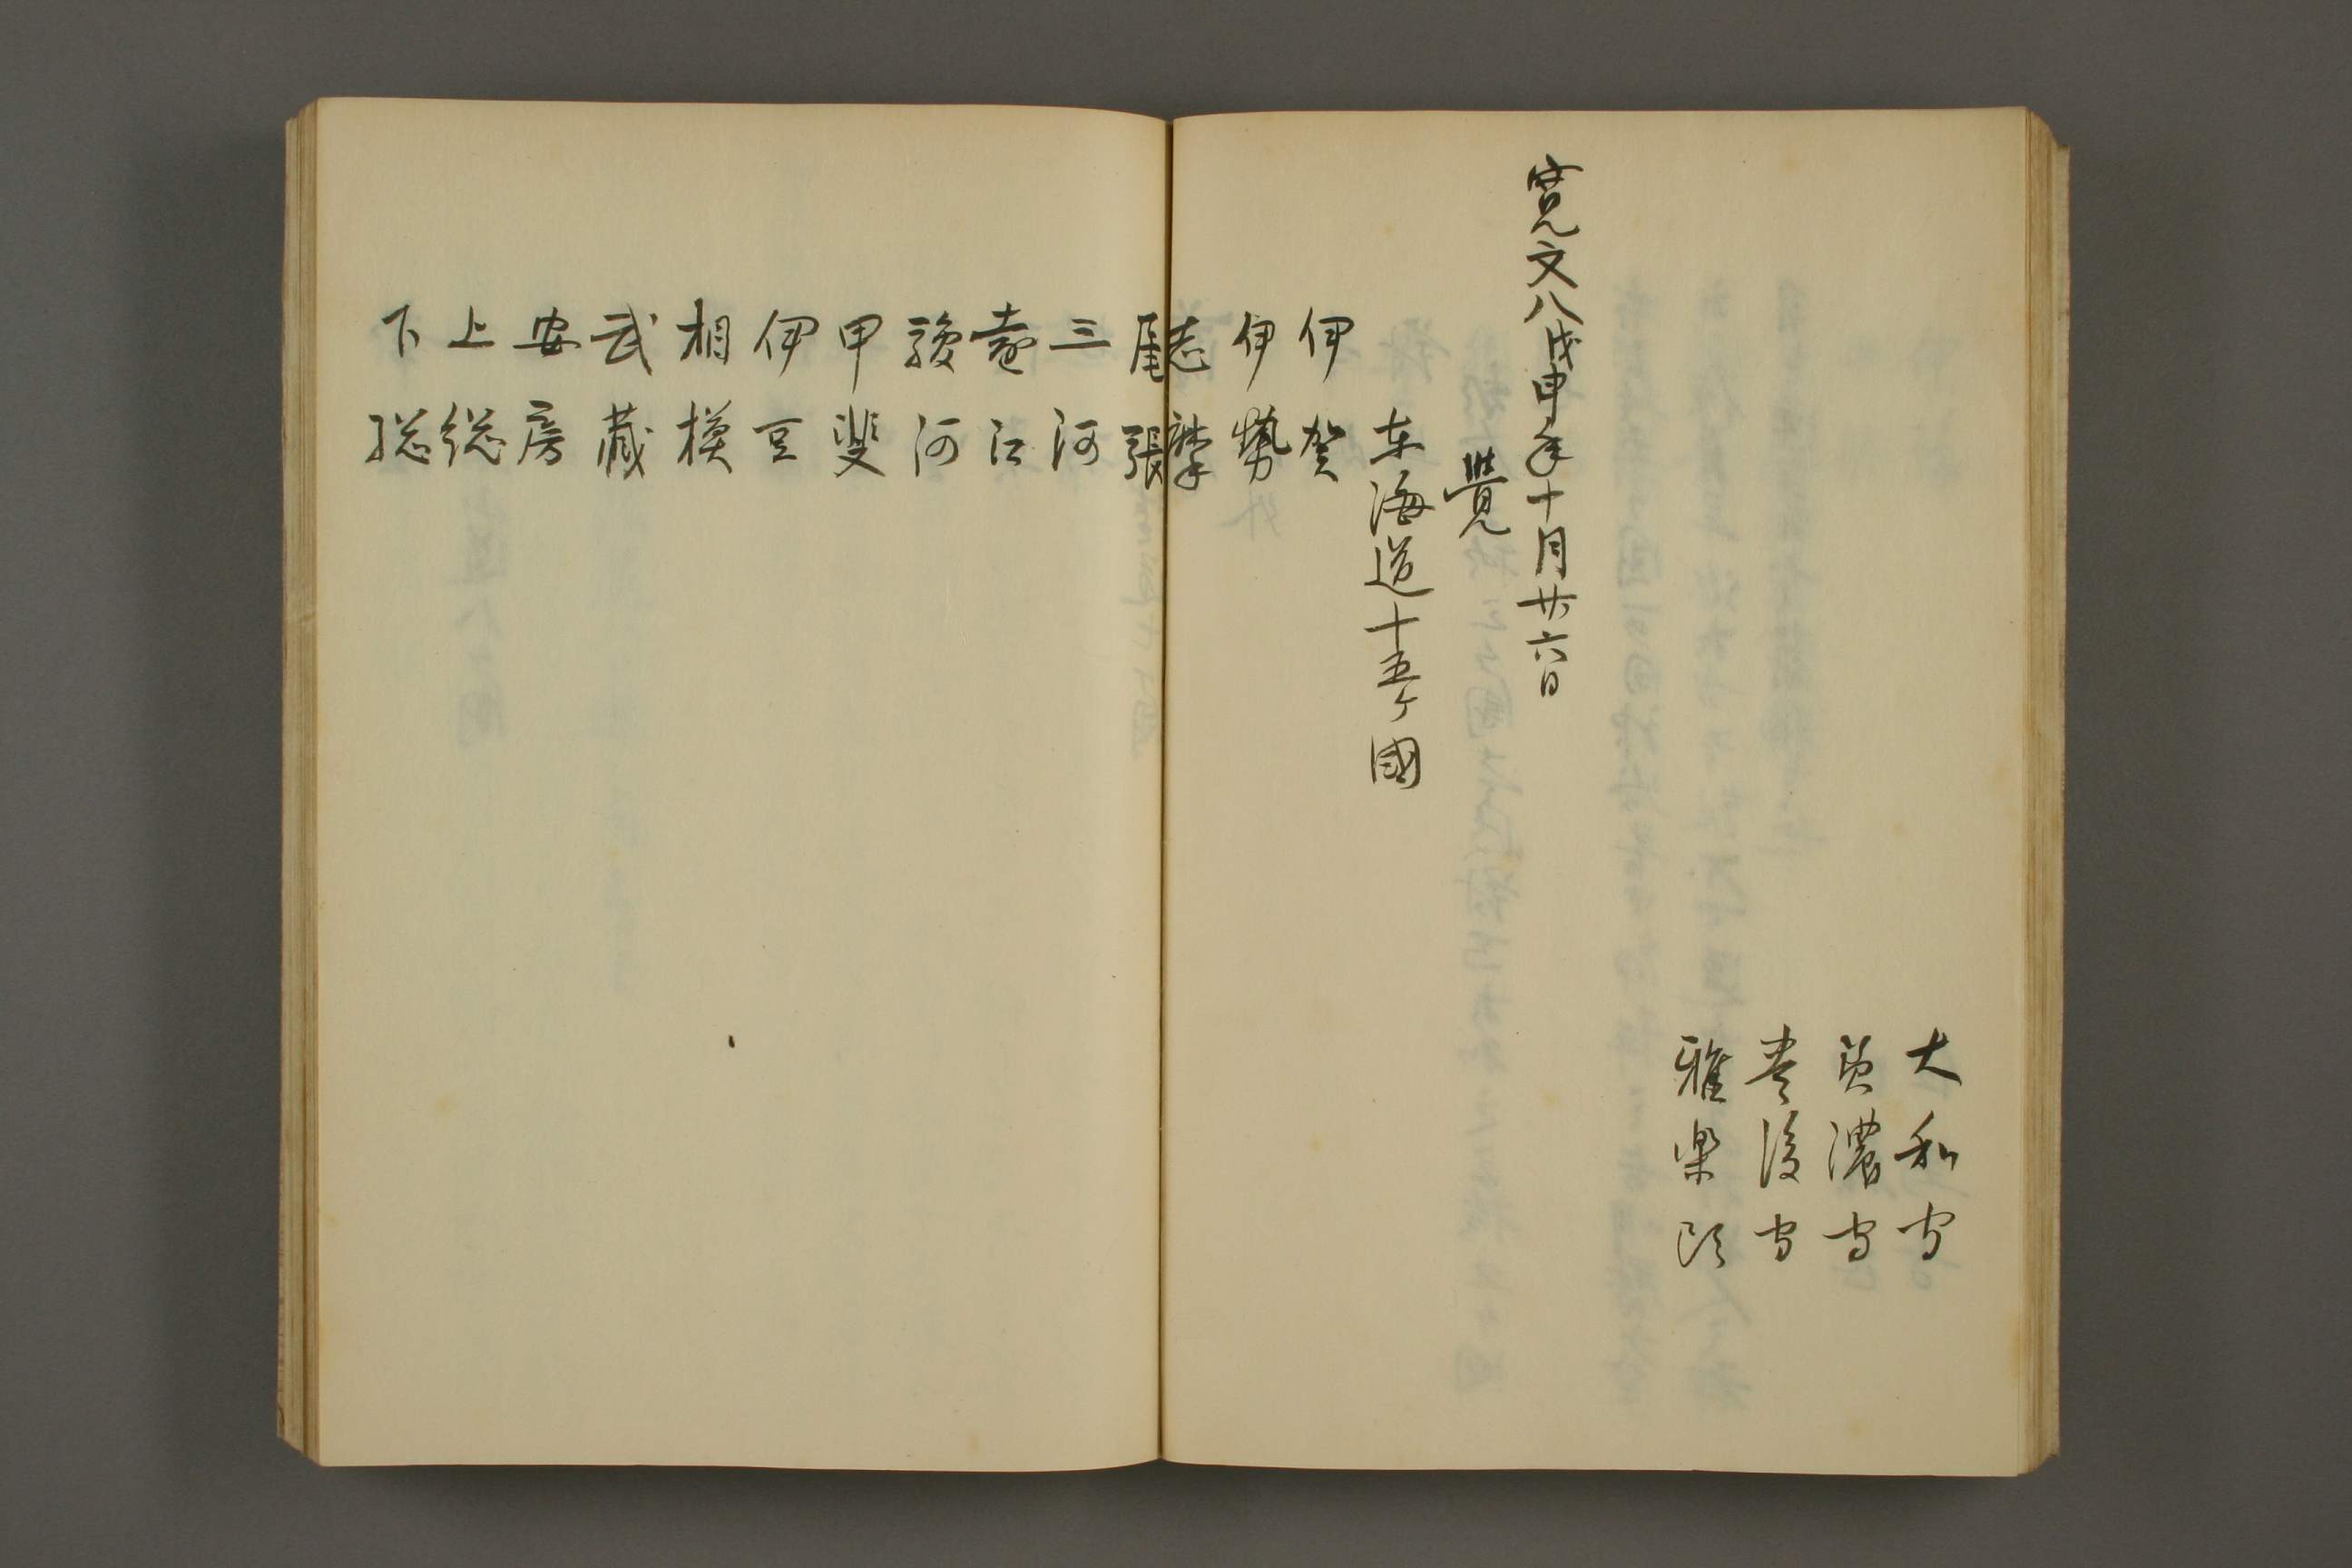 大和守
美濃守
豊後守
雅楽頭
寛文八戊申年十月廿六日
覺
東海道十五ケ國
伊賀
伊勢
志摩
尾張
三河
遠江
駿河
甲斐
伊豆
相模
武蔵
安房
上総
下総